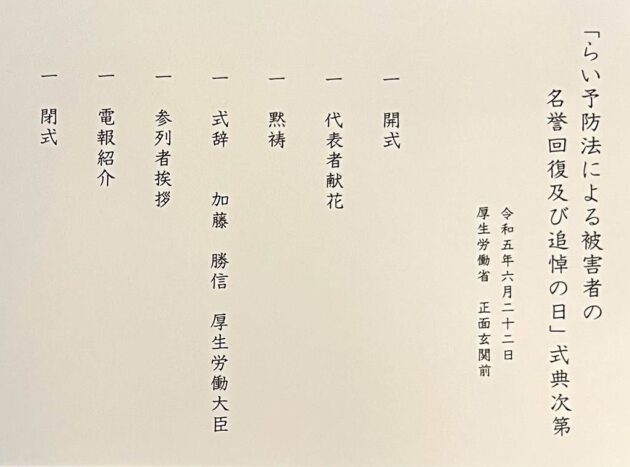 「らい予防法による被害者の
名誉回復及び追悼の日」式典次第
令和五年六月二十二日
厚生労働省　正面玄関前
一　開式
一　代表者献花
一　黙祷
一　式辞　　加藤　勝信　厚生労働大臣
一　参列者挨拶
一　電報紹介
一　閉式